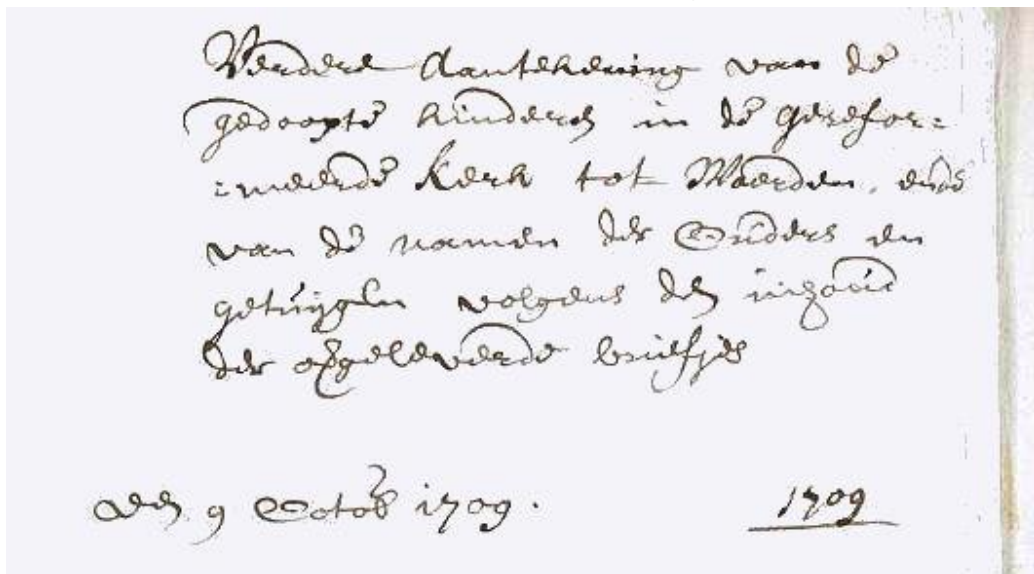 Verdere Aantekening van de
gedoopte kinderen in de gerefor=
=meerde kerk tot Woerden, ende
van de namen der Ouders en
getuijgen volgens den inhoud
der opgeleverde briefjes
den 9 Octob 1709.
1709